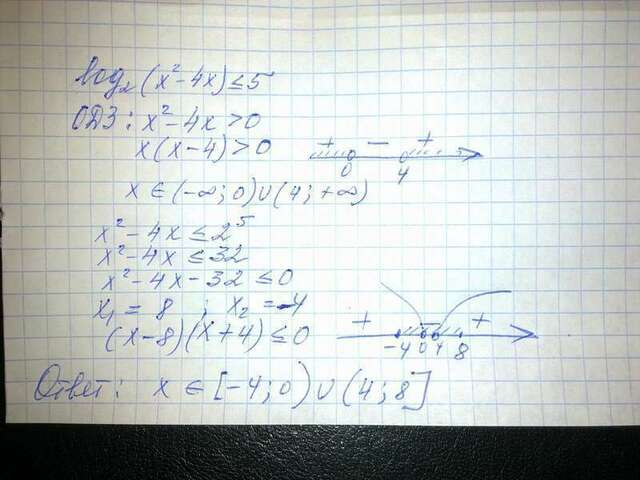 log₂(x²-4x)≤5
ОДЗ: x²-4x>0
x(x-4)>0 + - +
0 4
x∈(-∞;0)∪(4;+∞)
x²-4x≤2⁵
x²-4x≤32
x²-4x-32≤0
x₁=8; x₂=-4
(x-8)(x+4)≤0 + - +
-4 0 4 8
Ответ: x∈[-4;0)∪(4;8]